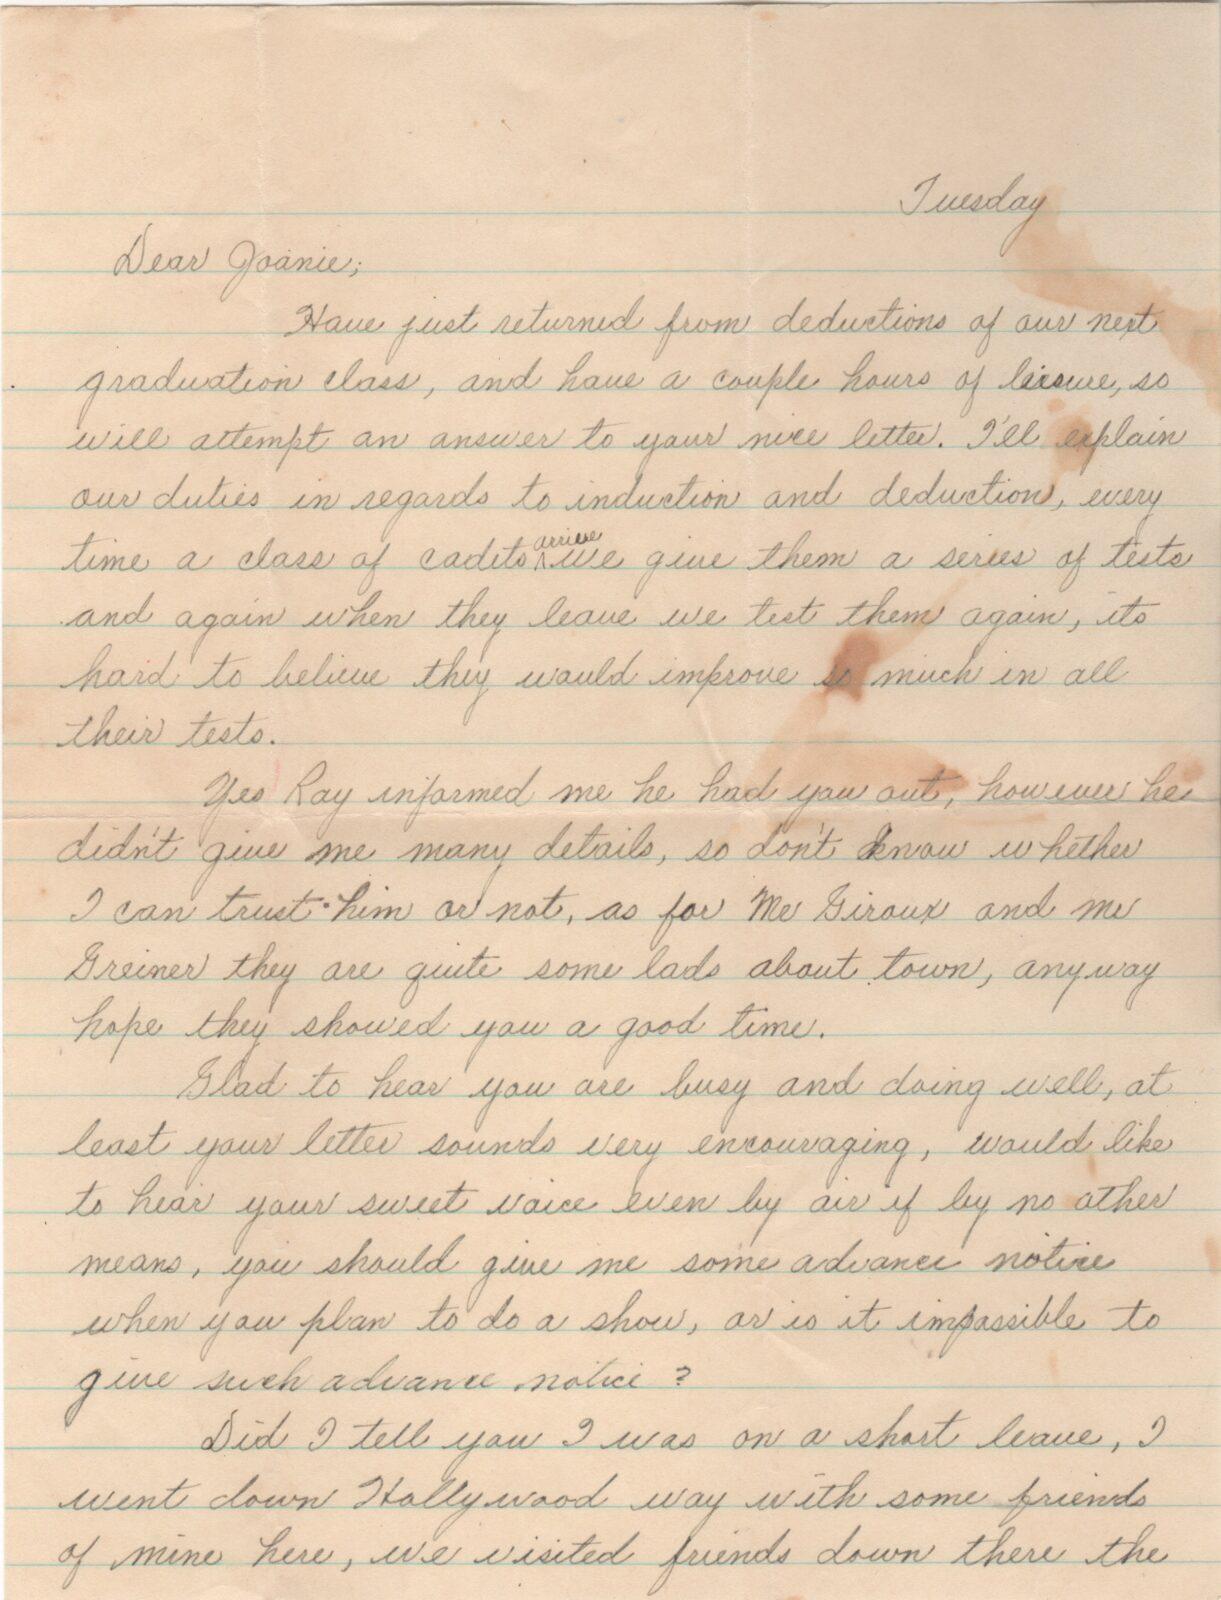 Tuesday
Dear Joanie;
Have just returned from deductions of our next
graduation class, and have a couple hours of leisure, so
will attempt an answer to your nice letter. I'll explain
our duties in regards to induction and deduction, every
time a class of cadets arrive we give them a series of tests
and again when they leave we test them again, its
hard to believe they would improve so much in all
their tests.
Yes Ray informed me he had you out, however he
didn't give me many details, so don't know whether
I can trust him or not, as for Mr Giroux and mr
Greiner they are quite some lads about town, anyway
hope they showed you a good time.
Glad to hear you are busy and doing well, at
least your letter sounds very encouraging, would like
to hear your sweet voice even by air if by no other
means, you should give me some advance notice
when you plan to do a show, or is it impossible to
give such advance notice?
Did I tell you I was on a short leave, I
went down Hollywood way with some friends
of mine here, we visited friends down there the